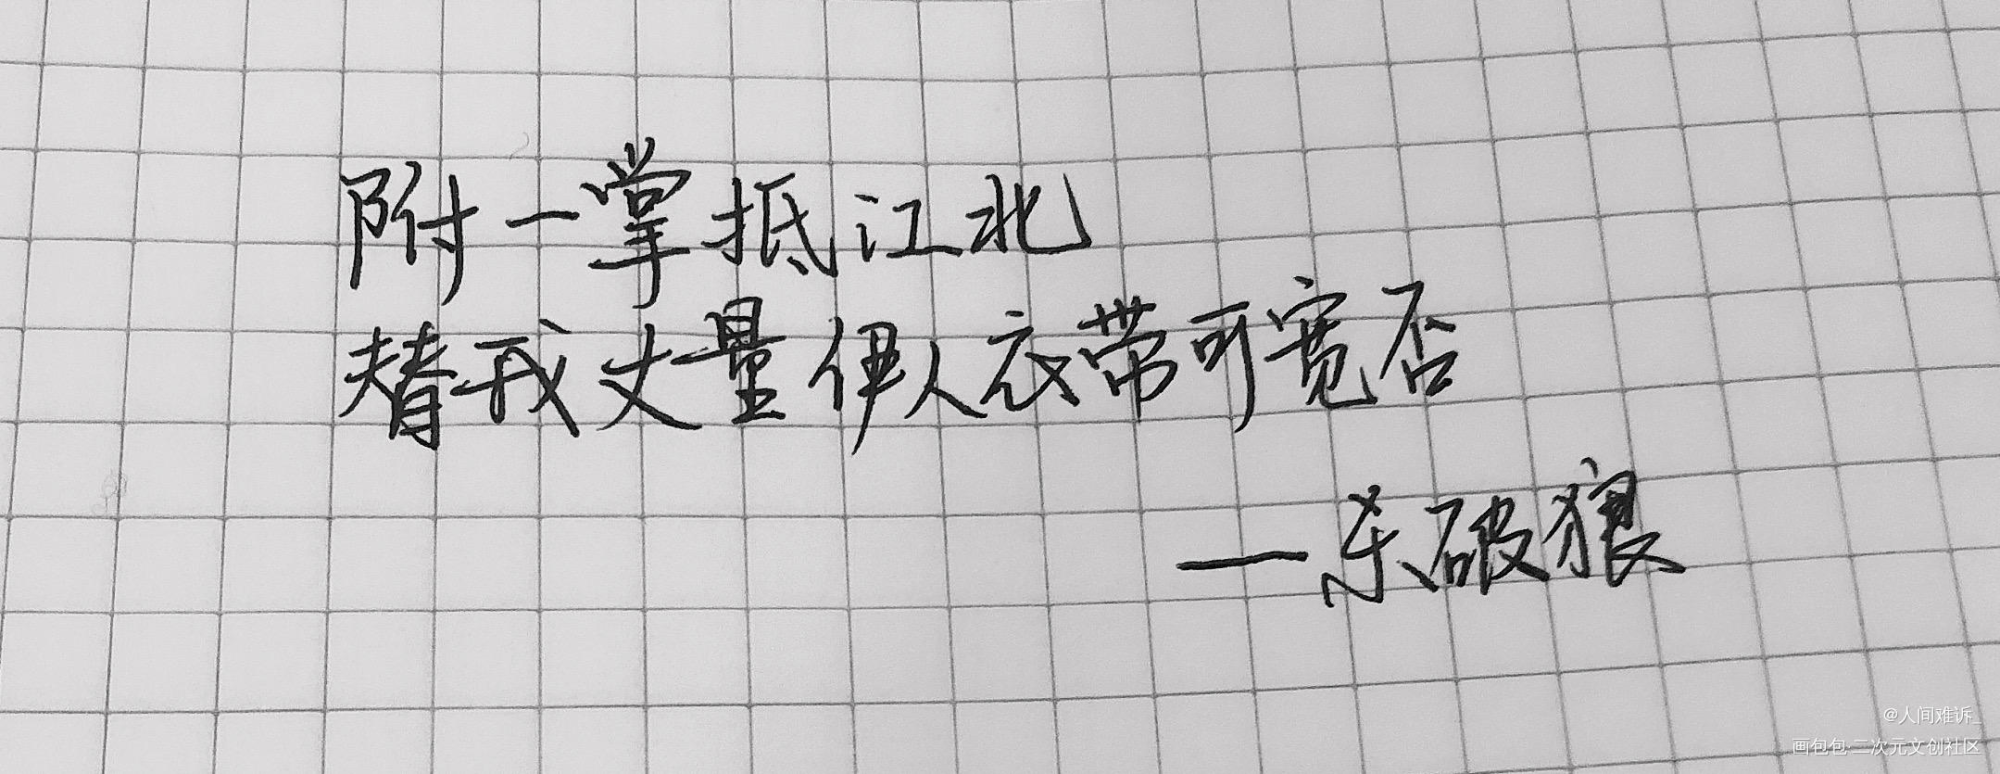 附一掌抵江北
替我丈量伊人衣带可宽否
—杀破狼
@人间难诉_
画包包·二次元文创社区